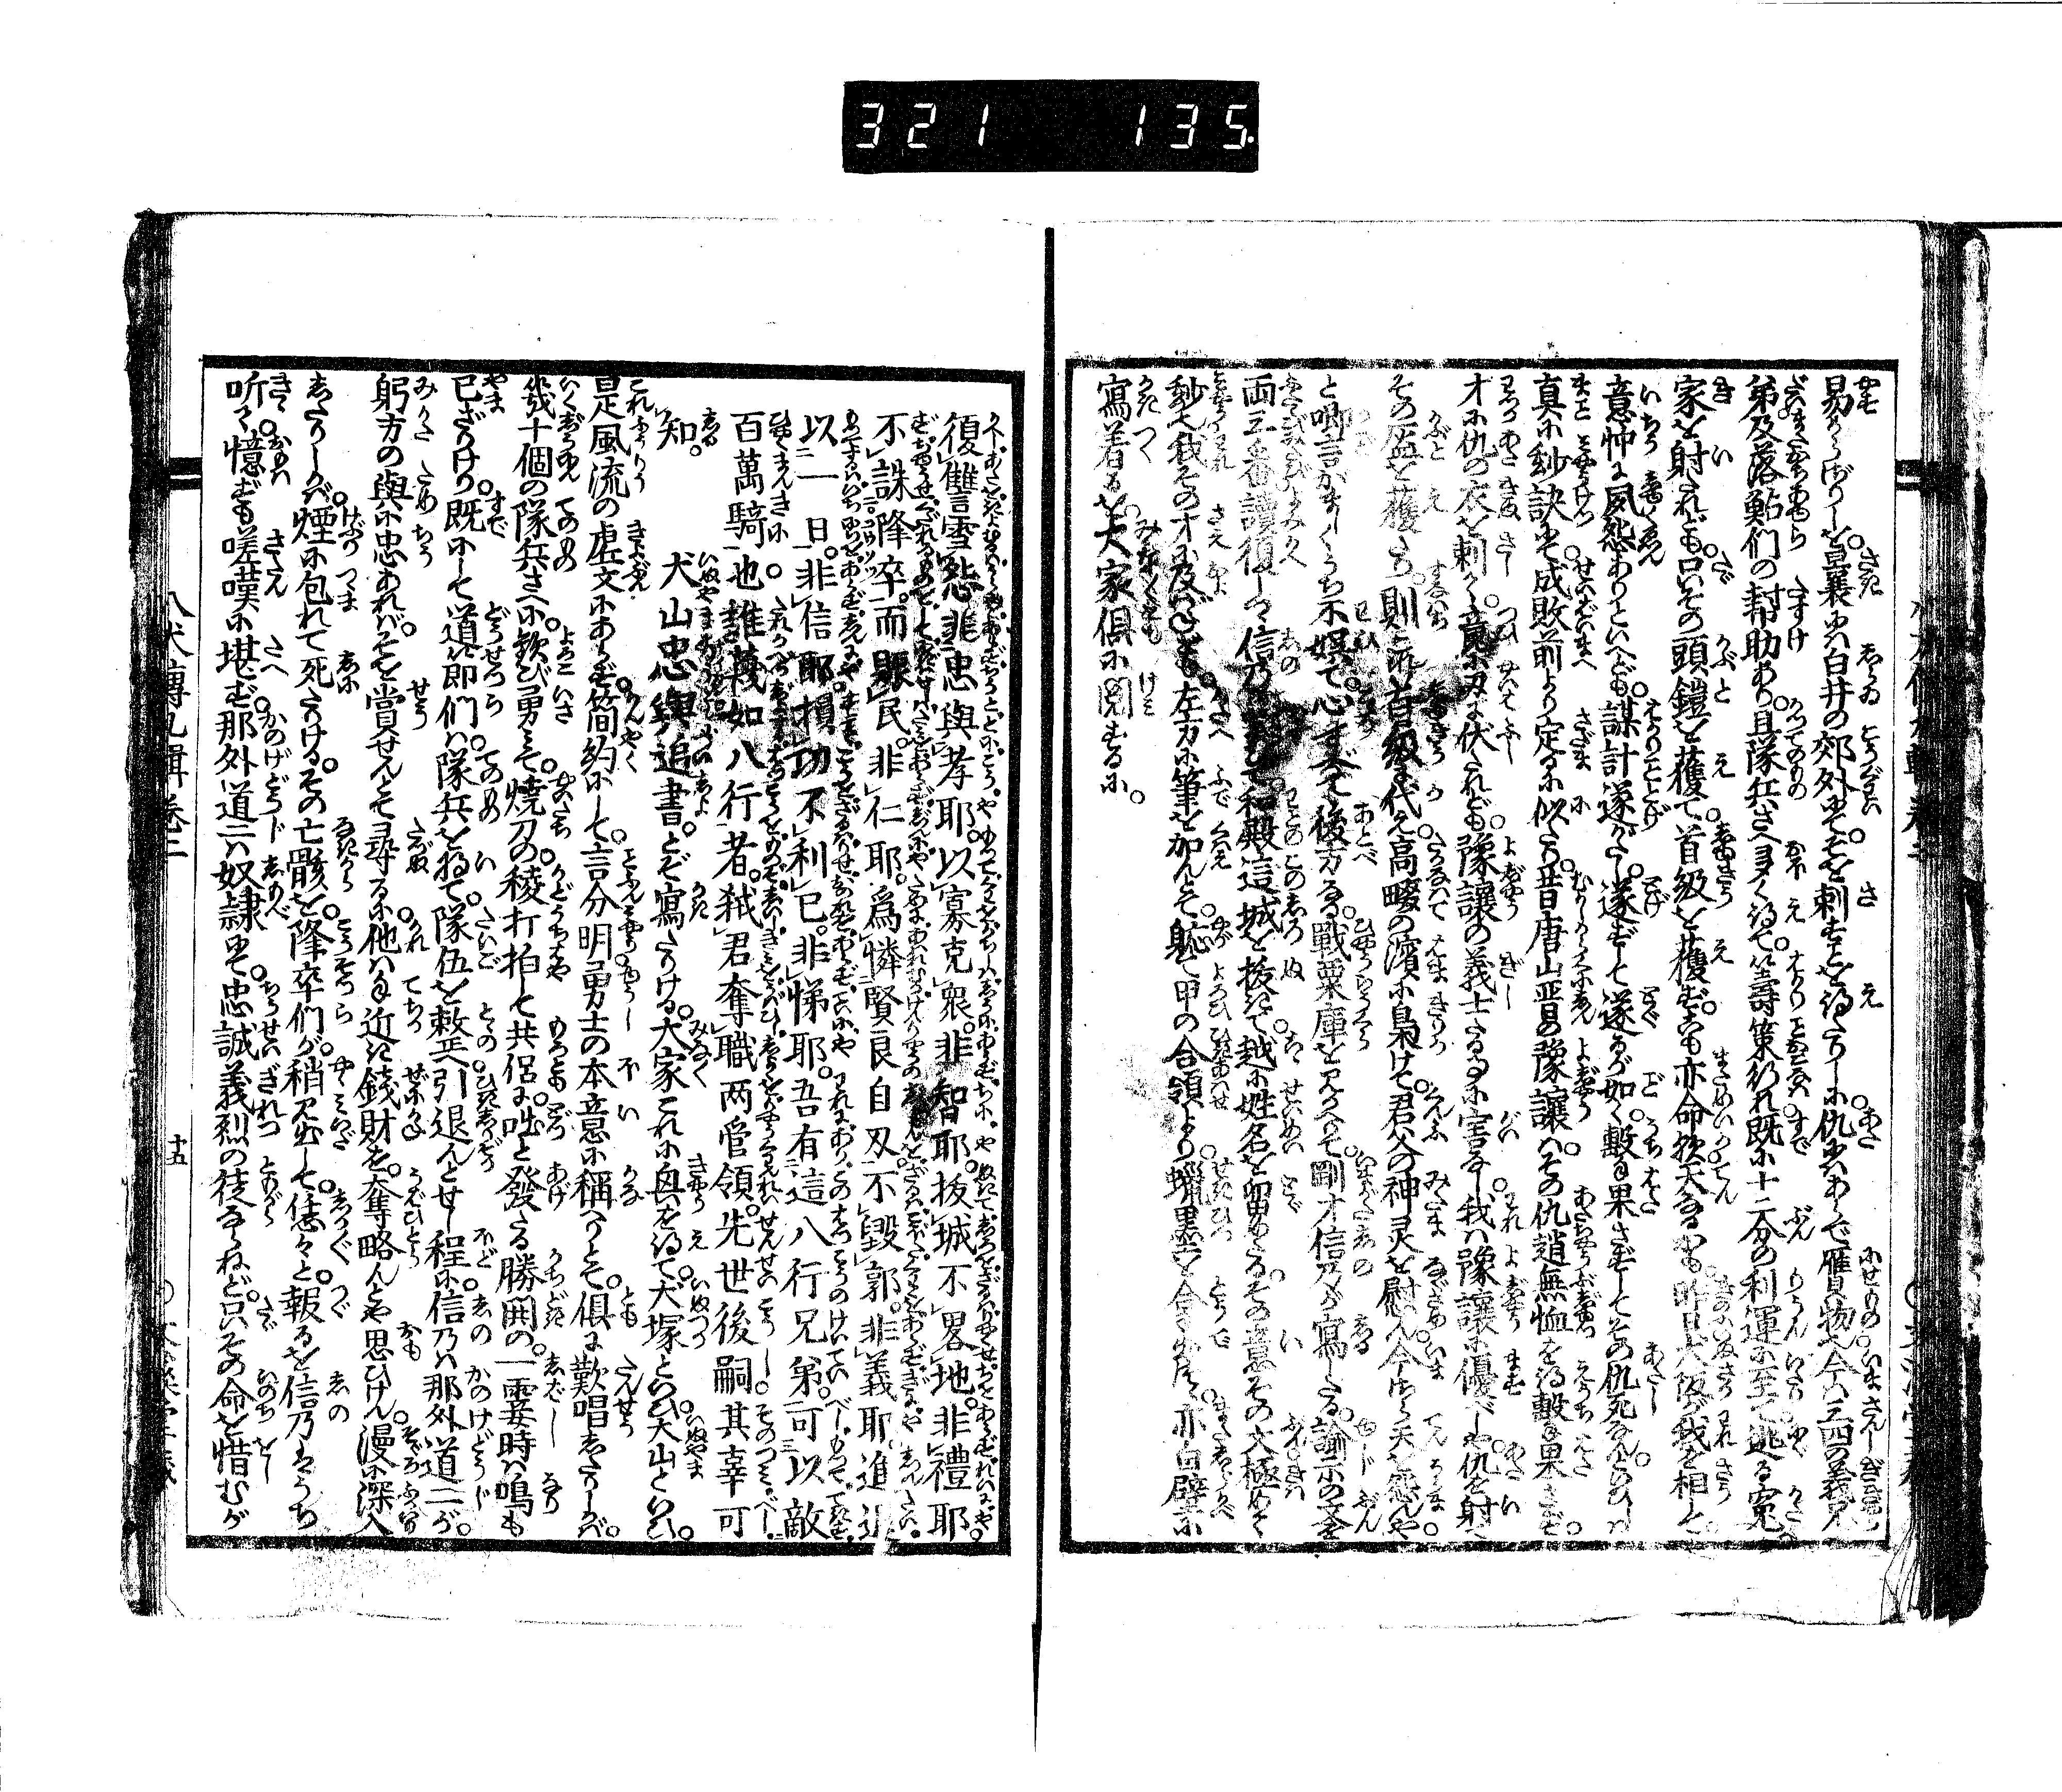 321 135
易からざりしを。曩裏には白井の郊外にて。そを刺すことを得たりしに仇にはあらで雁質物也今は三四の義兄
弟及落鮎們の幇助あり。且隊兵さへ多く得て籌策行れ既に十二分の利運に至て逃る冤
家を射たれども。只その頭鎧を獲て。首級を獲ず。是も亦命歟天なるかも。昨日犬阪が我を相して
意中に夙怨ありといへども謀計遂がたし。遂ずして遂るが如く。撃も果さずしてその仇死なんといひしは
真に妙訣にて成敗前より定るに似たり。昔唐山晋の豫讓は。その仇趙無恤を得撃も果さず。
才に仇の衣を刺て。竟に刄に伏たれども。豫讓の義士たるに害なし我は豫讓に優べしや。仇を射て
その盔を獲たり。則これ首級に代え高畷の濱に梟けて。君父の神灵を慰めん。今はた天を怨んや
と喞言がましくうち不娯て。心すべて後方なる。戰粟庫を見かへて。剛才信乃が寫したる。諭示の文を
両三番讀復しつゝ信乃に對ひて。和殿這城を抜きて越に姓名を留めたる。その意その文極めて
妙也我その才に及ばねども。左方に筆を加んとて。躬て甲の合領より。蠟墨斗を拿出て。亦白壁に
寫着るを。大家俱に閲するに。
復讐雪怨。非忠與孝耶。以寡克衆。非智耶。抜城不畧地。非禮耶。
不誅降卒。而賑民。非仁耶。爲憐賢良自刄不毀郭。非義耶。進退
以一日。非信耶。損功不利己。非悌耶。吾有這八行兄弟。可以敵
百萬騎也。誰幾如八行者。弒君奪職両管領。先世後嗣其辜可
知。犬山忠與追書。とぞ寫たりける。大家これに興を得て。犬塚といひ犬山といひ。
是風流の虚文にあらず。簡約にして。言分明。勇士の本意に稱へりとて。俱に歎唱したりしかば。
幾十個の隊兵さへに。歓び勇みて。燒刀の稜打拍して共侶に。咄と發たる勝閧の。一霎時は鳴も
已ざりけり。既にして道節們は。隊兵を將て。隊伍を整へ引退んとせし程に。信乃は那外道二が。
躬方の與に忠あれば。そを賞せんとて尋るに他は手近き錢財を。奪略んとや思ひけん。漫に深入
したりしかば。煙に包れて死たりける。その亡骸を。降卒們が。稍見出して。恁々と報るを信乃はうち
听て。憶ずも嗟嘆に堪ず。那外道二は奴隷にて。忠誠義烈の徒ならねど。只その命を惜むが
八犬傳九輯卷二
十五